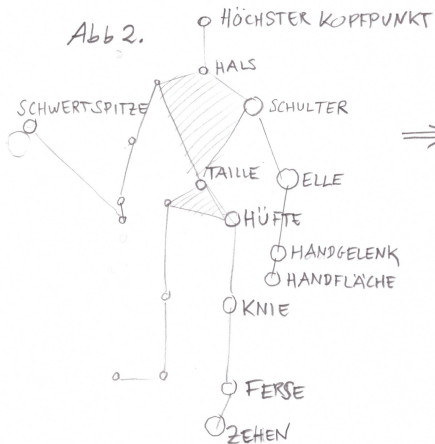 HÖCHSTER KOPFPUNKT
Abb 2.
HALS
SCHWERTSPITZE
SCHULTER
TAILLE
ELLE
HÜFTE
HANDGELENK
HANDFLÄCHE
KNIE
FERSE
ZEHEN